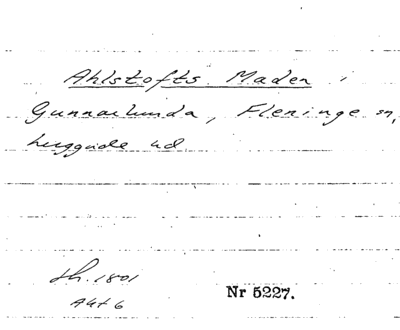 Ahlstofts Maden i
Gunnarlunda, Fleninge sn,
Luggude hd
sh. 1801
Akt 6
Nr 5227.